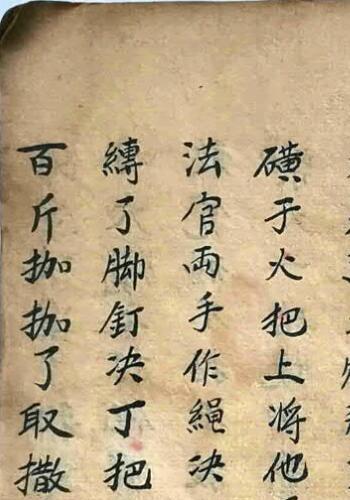 磺于火把上将他
法官両手作繩决
縛了脚釘决丁把
百斤抛抛了取撒